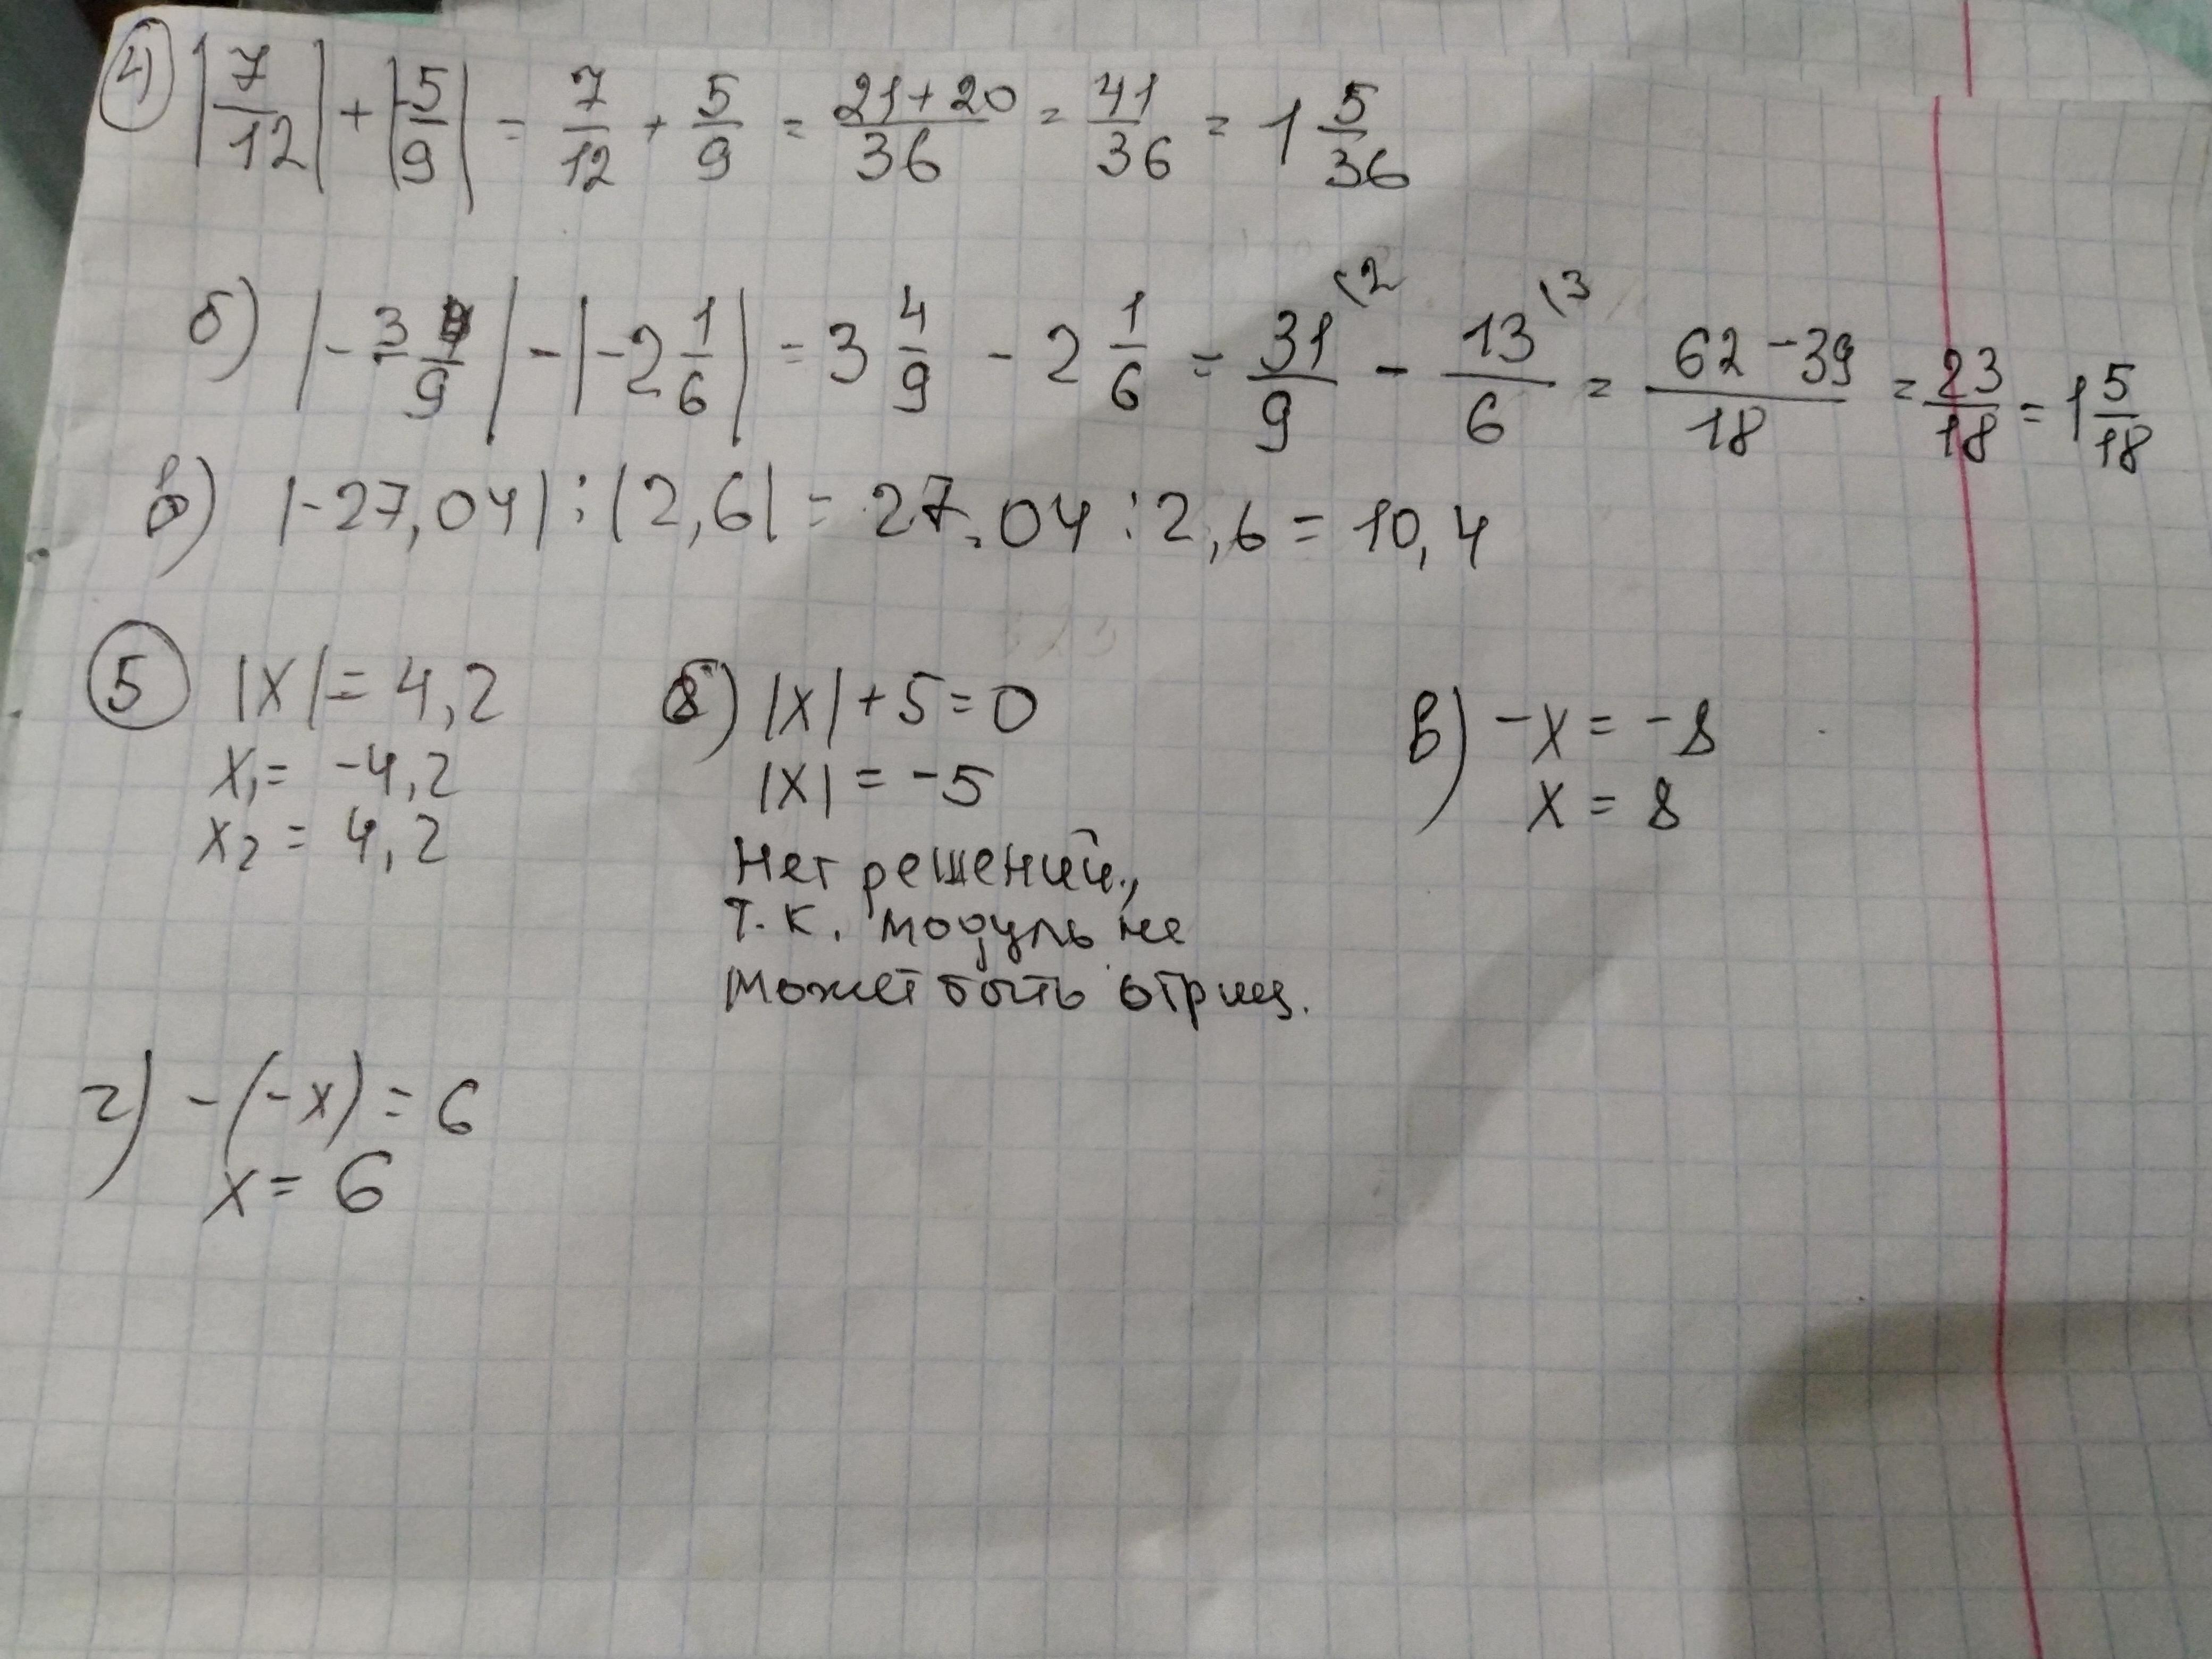 4) |7/12| + |-5/9| = 7/12 + 5/9 = (21+20)/36 = 41/36 = 1 5/36
б) |-3 4/9| - |-2 1/6| = 3 4/9 - 2 1/6 = 31/9 (2 - 13/6 (3 = (62-39)/18 = 23/18 = 1 5/18
в) |-27,04| : |2,6| = 27,04 : 2,6 = 10,4
5 |x| = 4,2
x₁ = -4,2
x₂ = 4,2
б) |x| + 5 = 0
|x| = -5
Нет решений,
т.к. модуль не
может быть отриц.
в) -x = -8
x = 8
г) -(-x) = 6
x = 6